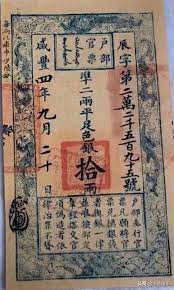 户部官票
辰字第二萬二千五百九十五號
準二兩平足色銀拾兩
咸豐四年九月二十日
每兩比庫平少陸分
户部奏行官
票凡願將官
票兌換銀錢
者與銀一律
並准按部定
章程搭交官
項偽造者依
律治罪不貸